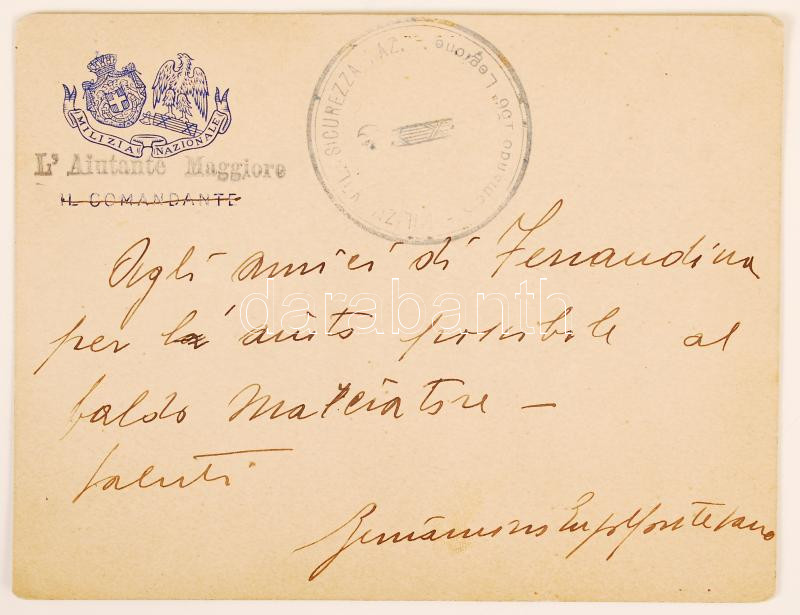 MILIZIA NAZIONALE
L' Aiutante Maggiore
IL COMANDANTE
SICUREZZA NAZ.
Legione
Agli amici di Ferrandina
per l' aiuto possibile al
baldo Marciatore —
Saluti
darabanth